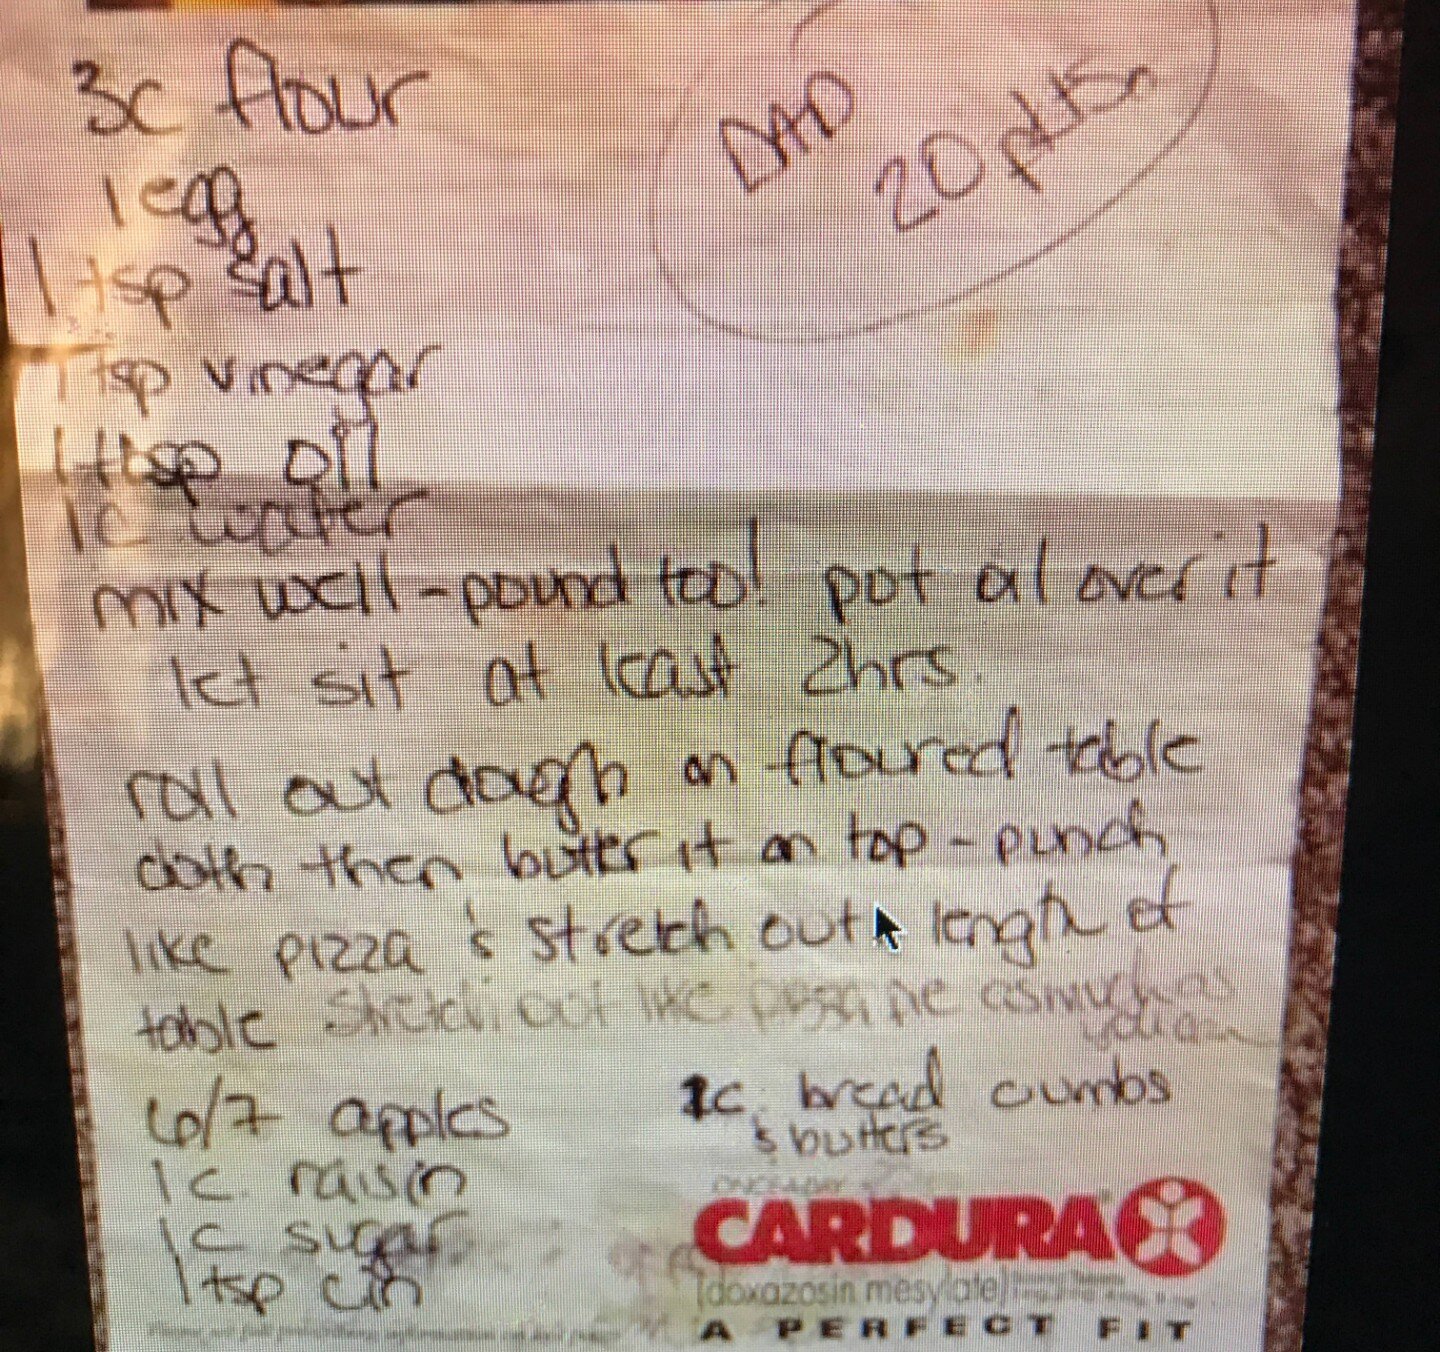 3c flour
DAD
20
1 egg
1 tsp salt
1 tsp vinegar
1 tbsp oil
1c water
mix well - pound too! pot al over it
let sit at least 2hrs.
roll out dough on floured table
cloth then butter it on top - punch
like pizza & stretch out length of
table stretch out like pizza pie as much as
you can
6/7 apples
1c. bread cumbs
& butters
1c. raisin
1c sugar
1 tsp cin
CARDURA
(doxazosin mesylate)
A PERFECT FIT